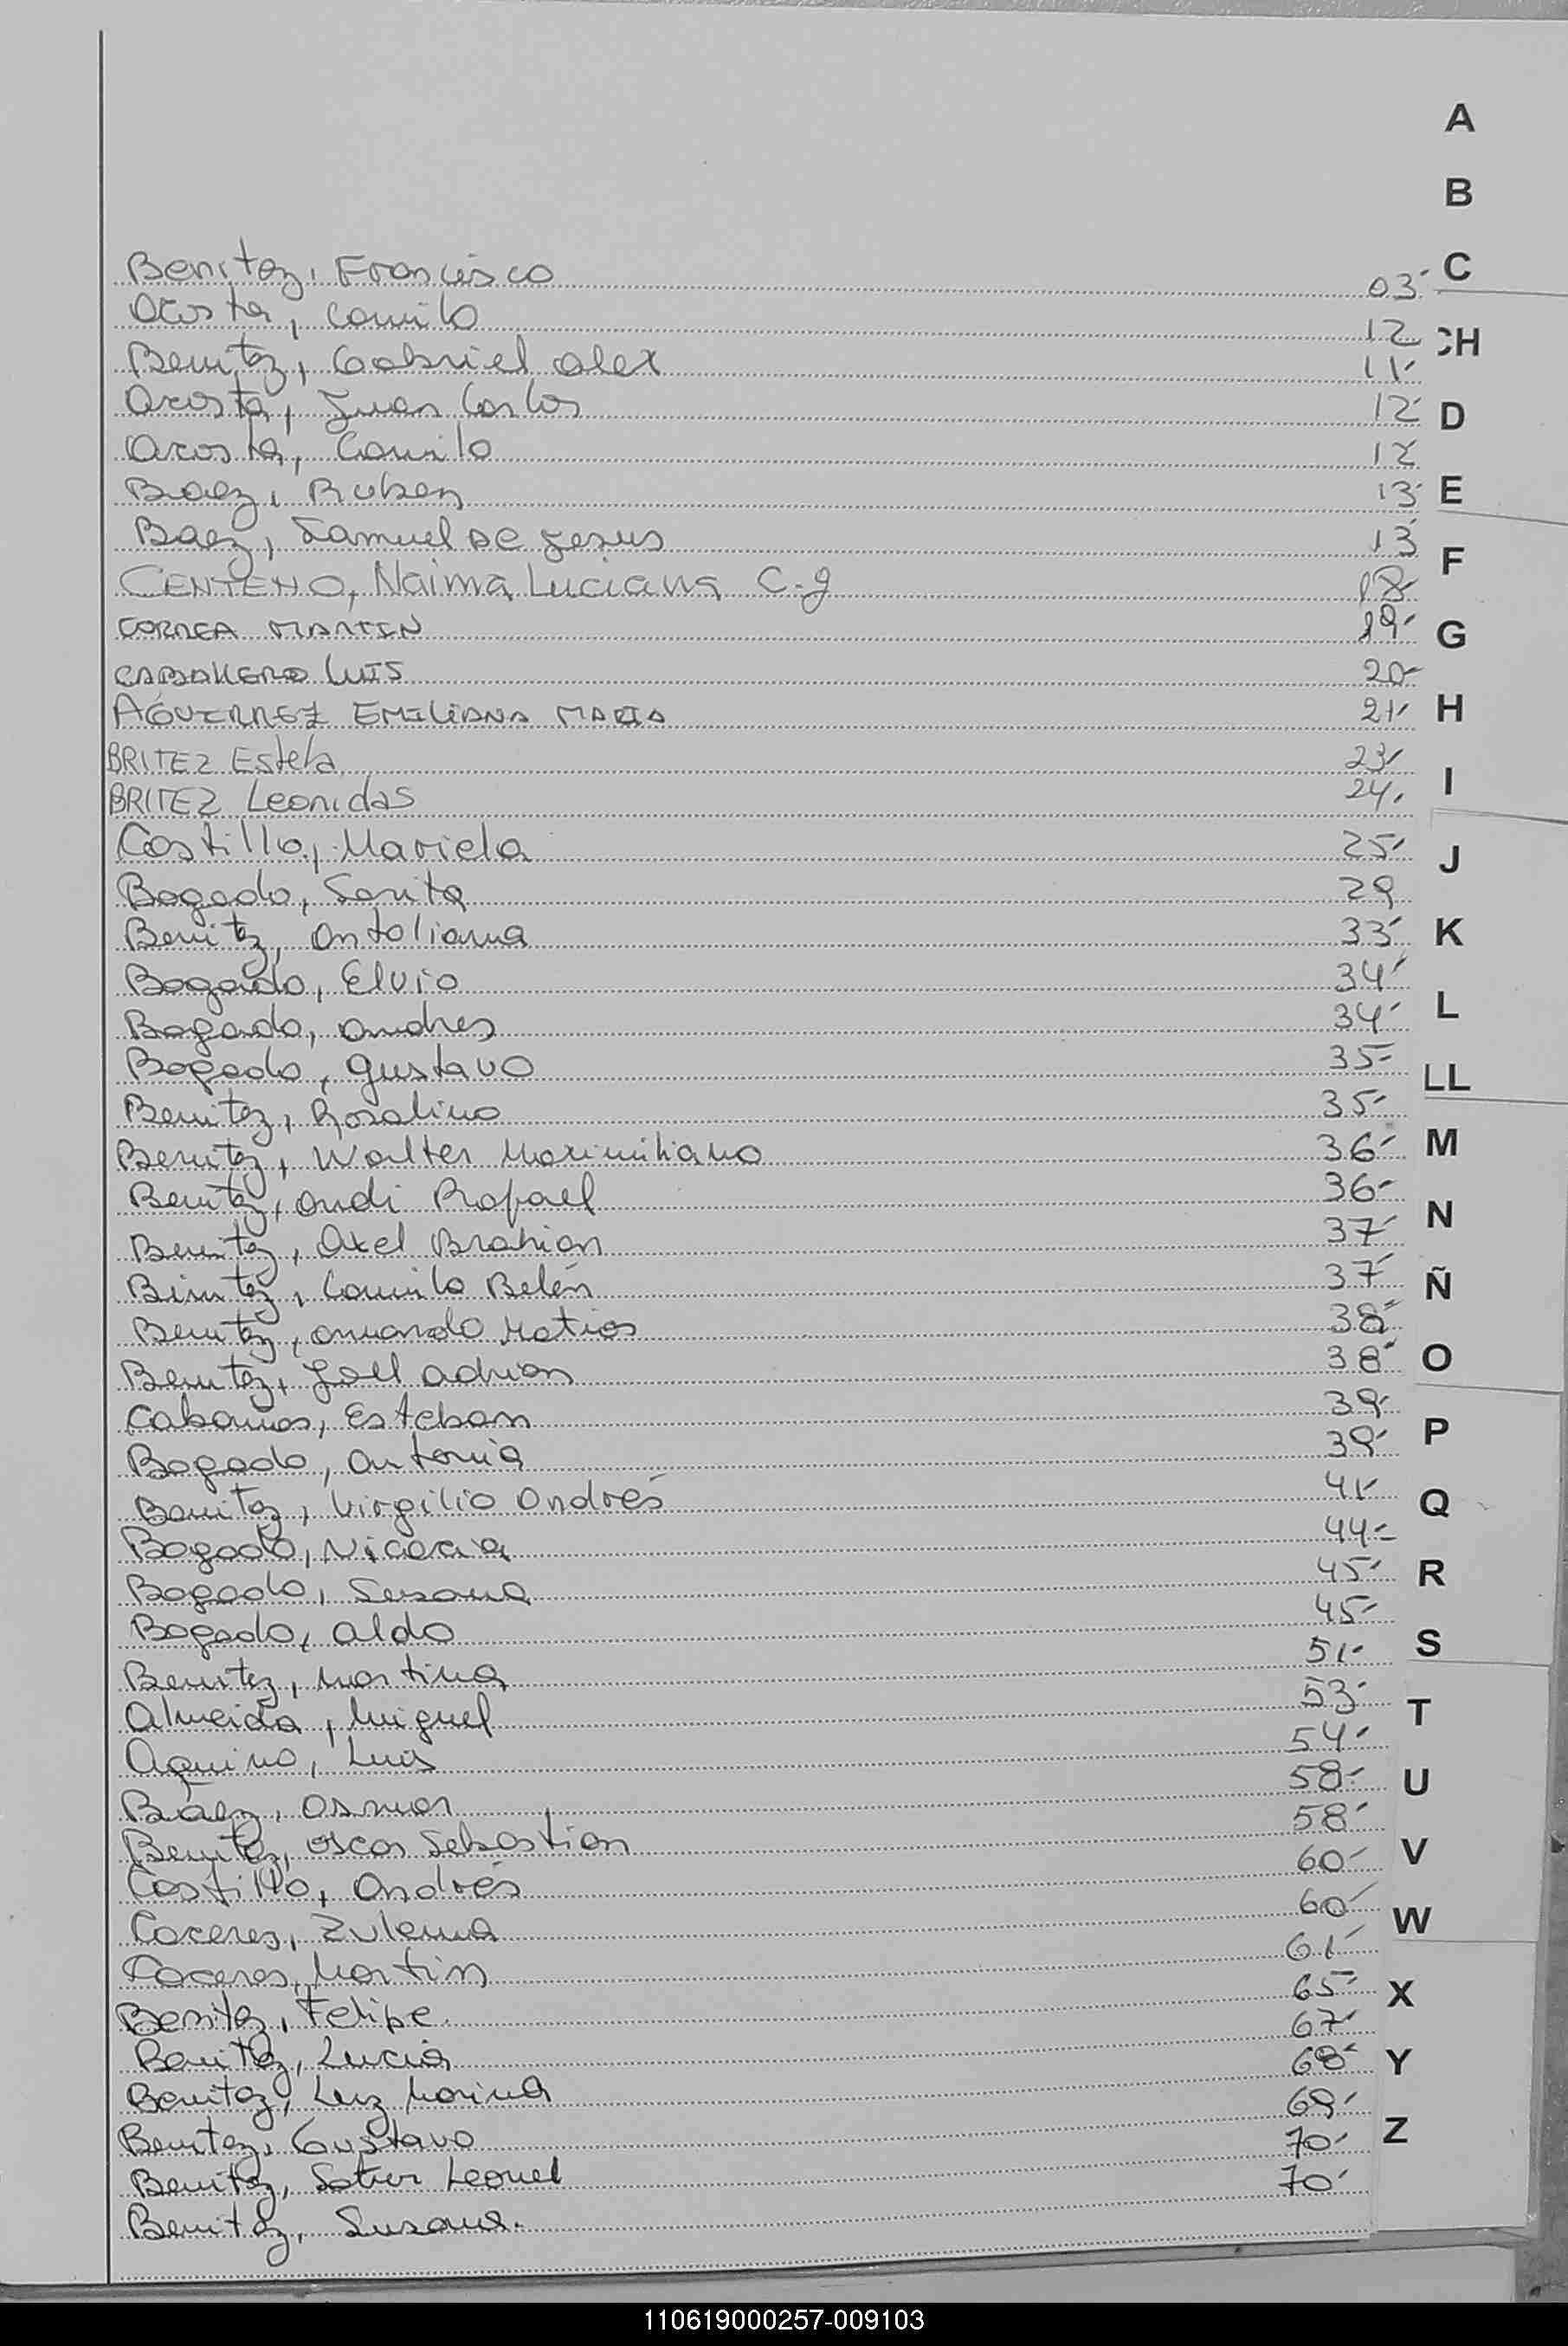 A
B
Benitez, Francisco 03 C
Acosta, Camilo 12 CH
Benitez, Gabriel Alex 11
Acosta, Juan Carlos 12 D
Acosta, Camilo 12
Baez, Ruben 13 E
Baez, Samuel De Jesus 13
CENTENO, Naima Luciana C-J 18 F
CORREA MARTIN 19 G
CABALLERO LUIS 20
AGUIRREZ EMILIANA MARIA 21 H
BRITEZ Estela 23
BRITEZ Leonidas 24 I
Castillo, Mariela 25 J
Bogado, Sarita 29
Benitez, Antoliana 33 K
Bogado, Elvio 34
Bogado, Andres 34 L
Bogado, Gustavo 35
Benitez, Rosalino 35 LL
Benitez, Walter Maximiliano 36 M
Benitez, Andi Rafael 36
Benitez, Axel Brahian 37 N
Binitez, Camila Belén 37 Ñ
Benitez, Armando Matias 38
Benitez, Joel Adrian 38 O
Cabañas, Esteban 39
Bogado, Antonia 39 P
Benitez, Virgilio Andrés 41 Q
Bogado, Nicacia 44
Bogado, Susana 45 R
Bogado, Aldo 45
Benitez, Martina 51 S
Almeida, Miguel 53 T
Aquino, Luis 54
Báez, Osmar 58 U
Benitez, Oscar Sebastian 58
Castillo, Andrés 60 V
Caceres, Zulema 60 W
Caceres, Martin 61
Benitez, Felipe 65 X
Benitez, Lucia 67
Benitez, Luz Marina 68 Y
Benitez, Gustavo 69
Benitez, Leonel 70 Z
Benitez, Susana. 70
110619000257-009103